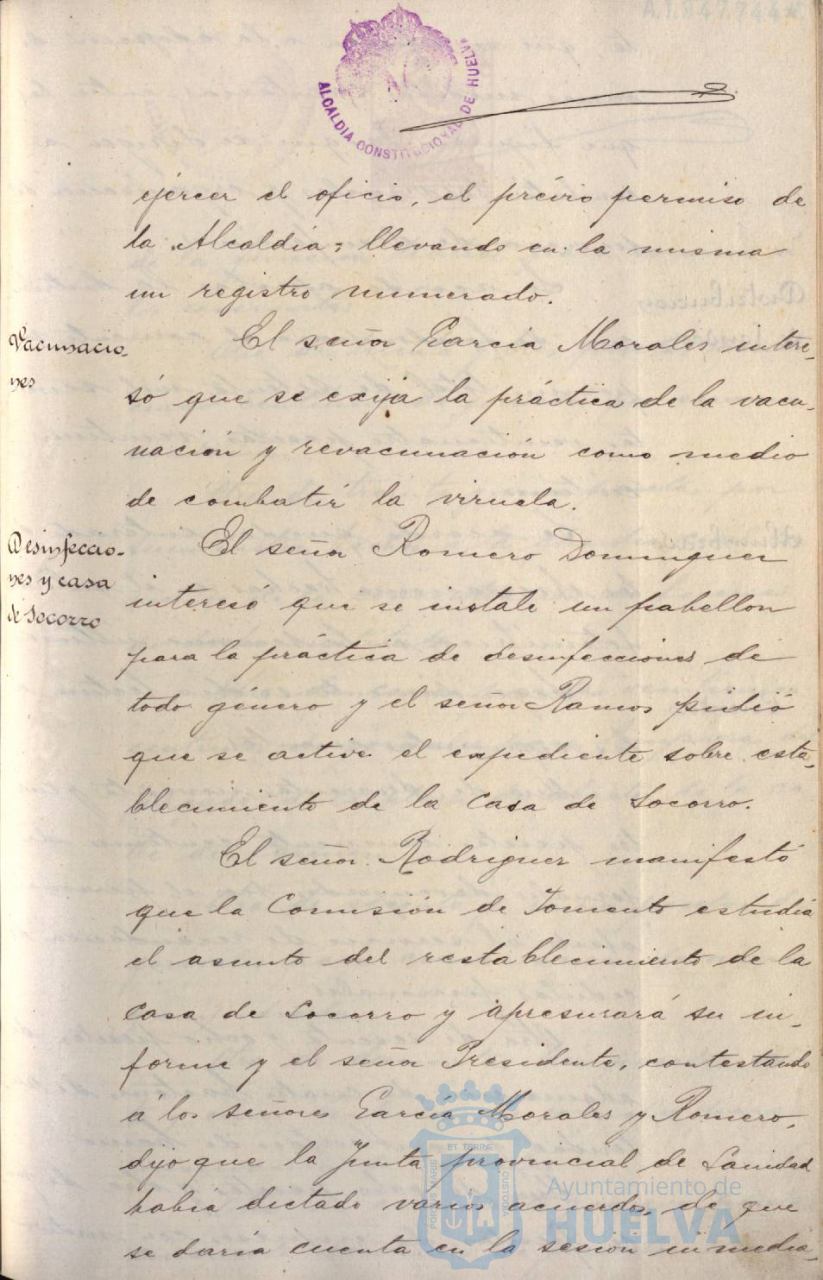 A.1.947.744
ALCALDIA CONSTITUCIONAL DE HUELVA
ejercer el oficio, el prévio permiso de
la Alcaldía; llevando en la misma
un registro numerado.
Vacunacio-
nes
El señor García Morales intere-
só que se exija la práctica de la vacu-
nación y revacunación como medio
de combatir la viruela.
Desinfeccio-
nes y casa
de Socorro
El señor Romero Dominguez
interesó que se instale un pabellon
para la práctica de desinfecciones de
todo género y el señor Ramos pidió
que se active el expediente sobre esta-
blecimiento de la Casa de Socorro.
El señor Rodriguez manifestó
que la Comisión de Fomento estudia
el asunto del restablecimiento de la
Casa de Socorro y apresurará su in-
forme y el señor Presidente, contestando
á los señores García Morales y Romero,
dijo que la Junta provincial de Sanidad
había dictado varios acuerdos, de que
se daría cuenta en la sesión inmedia-
Ayuntamiento de
HUELVA